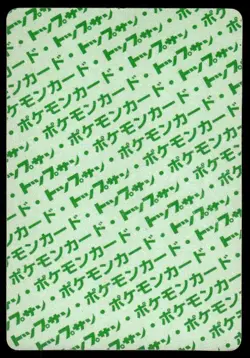 トップサン・
ポケモンカード・トップサン・
トップサン・ポケモンカード・
ポケモンカード・トップサン・
トップサン・ポケモンカード・
ポケモンカード・トップサン・
トップサン・ポケモンカード・
ポケモンカード・トップサン・
トップサン・ポケモンカード・
ポケモンカード・トップサン・
トップサン・ポケモンカード・
ポケモンカード・